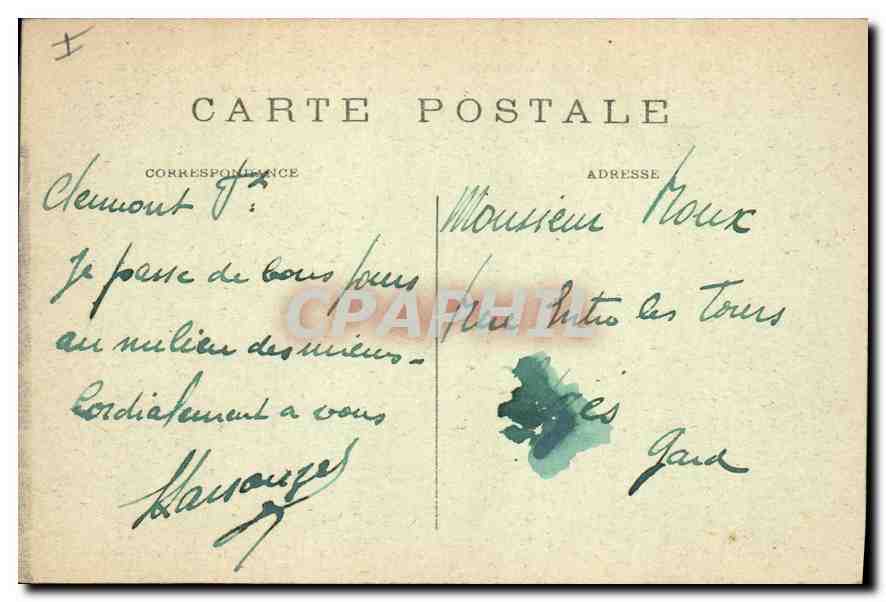 CARTE POSTALE
CORRESPONDANCE
Clermont Fd
Je passe de bons jours
au milieu des miens -
Cordialement a vous
ADRESSE
Monsieur Roux
Rue Entre les Tours
Gard
CPAPHIL